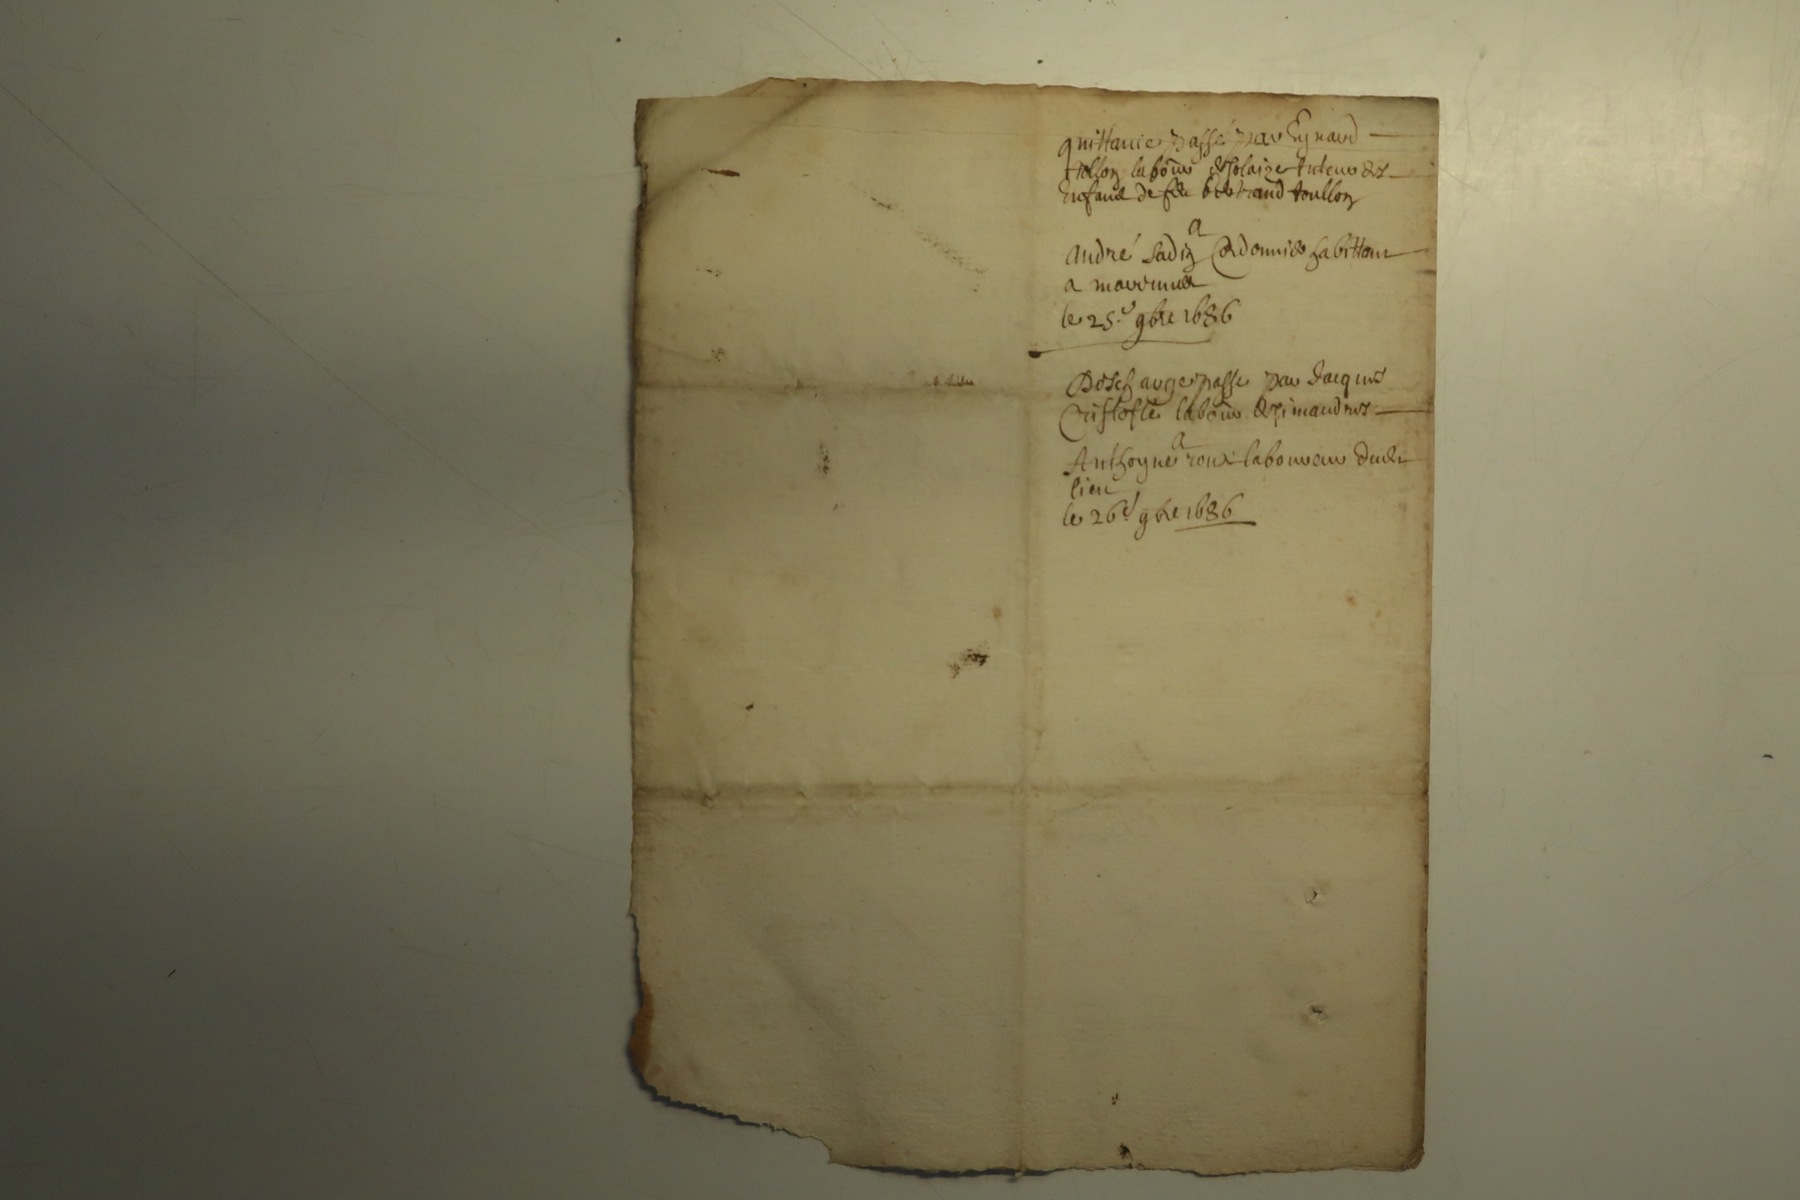 quittance passé par Eynard
tollon labour de tuteur des
Enfans de feu bertrand toullon
a
André Sadin Cordonnier habittant
a
le 25e 9bre 1686
Descharge passé par Jacques
Cristofle labour
a
Anthoyne roux laboureur dudit
lieu
le 26e 9bre 1686